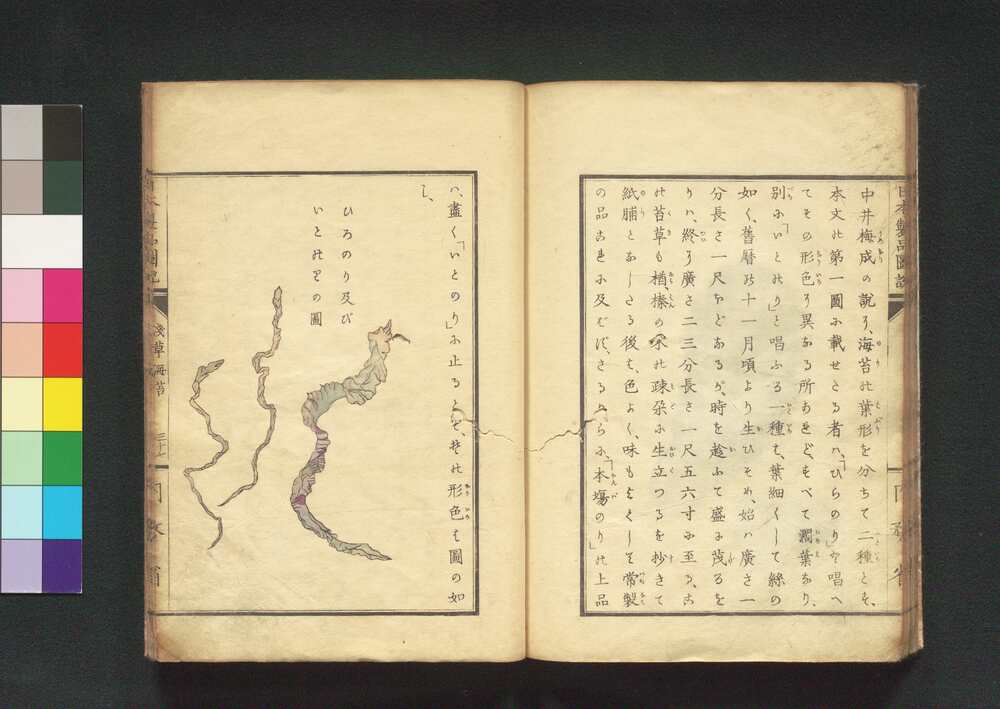 日本製品圖説
中井梅成の説ヿ、海苔の葉形を分ちて二種とす、
本文の第一圖に載せたる者ハ、「ひらのり」と唱へ
てその形色ヿ異なる所あれども、すべて濶葉なり、
別に「いとのり」と唱ふる一種も、葉細くして絲の
如く、舊曆の十一月頃より生ひそめ、始ハ廣さ一
分長さ一尺ほどなるが、時を趁ふて盛に茂るを
りハ、終ヿ廣さ二三分長さ一尺五六寸に至る、
の苔草も楢、榛の
の疎朶に生立つるを抄きて
紙脯となしたる後も、色よく、味もよくして常製
の品よ
に及ばず、さる
に、「本場のり」の上品
ハ、盡く「いとのり」に止ると
の形色も圖の如
し、
ひろのり及び
いとのりの圖
淺草海苔
三十一
内務省